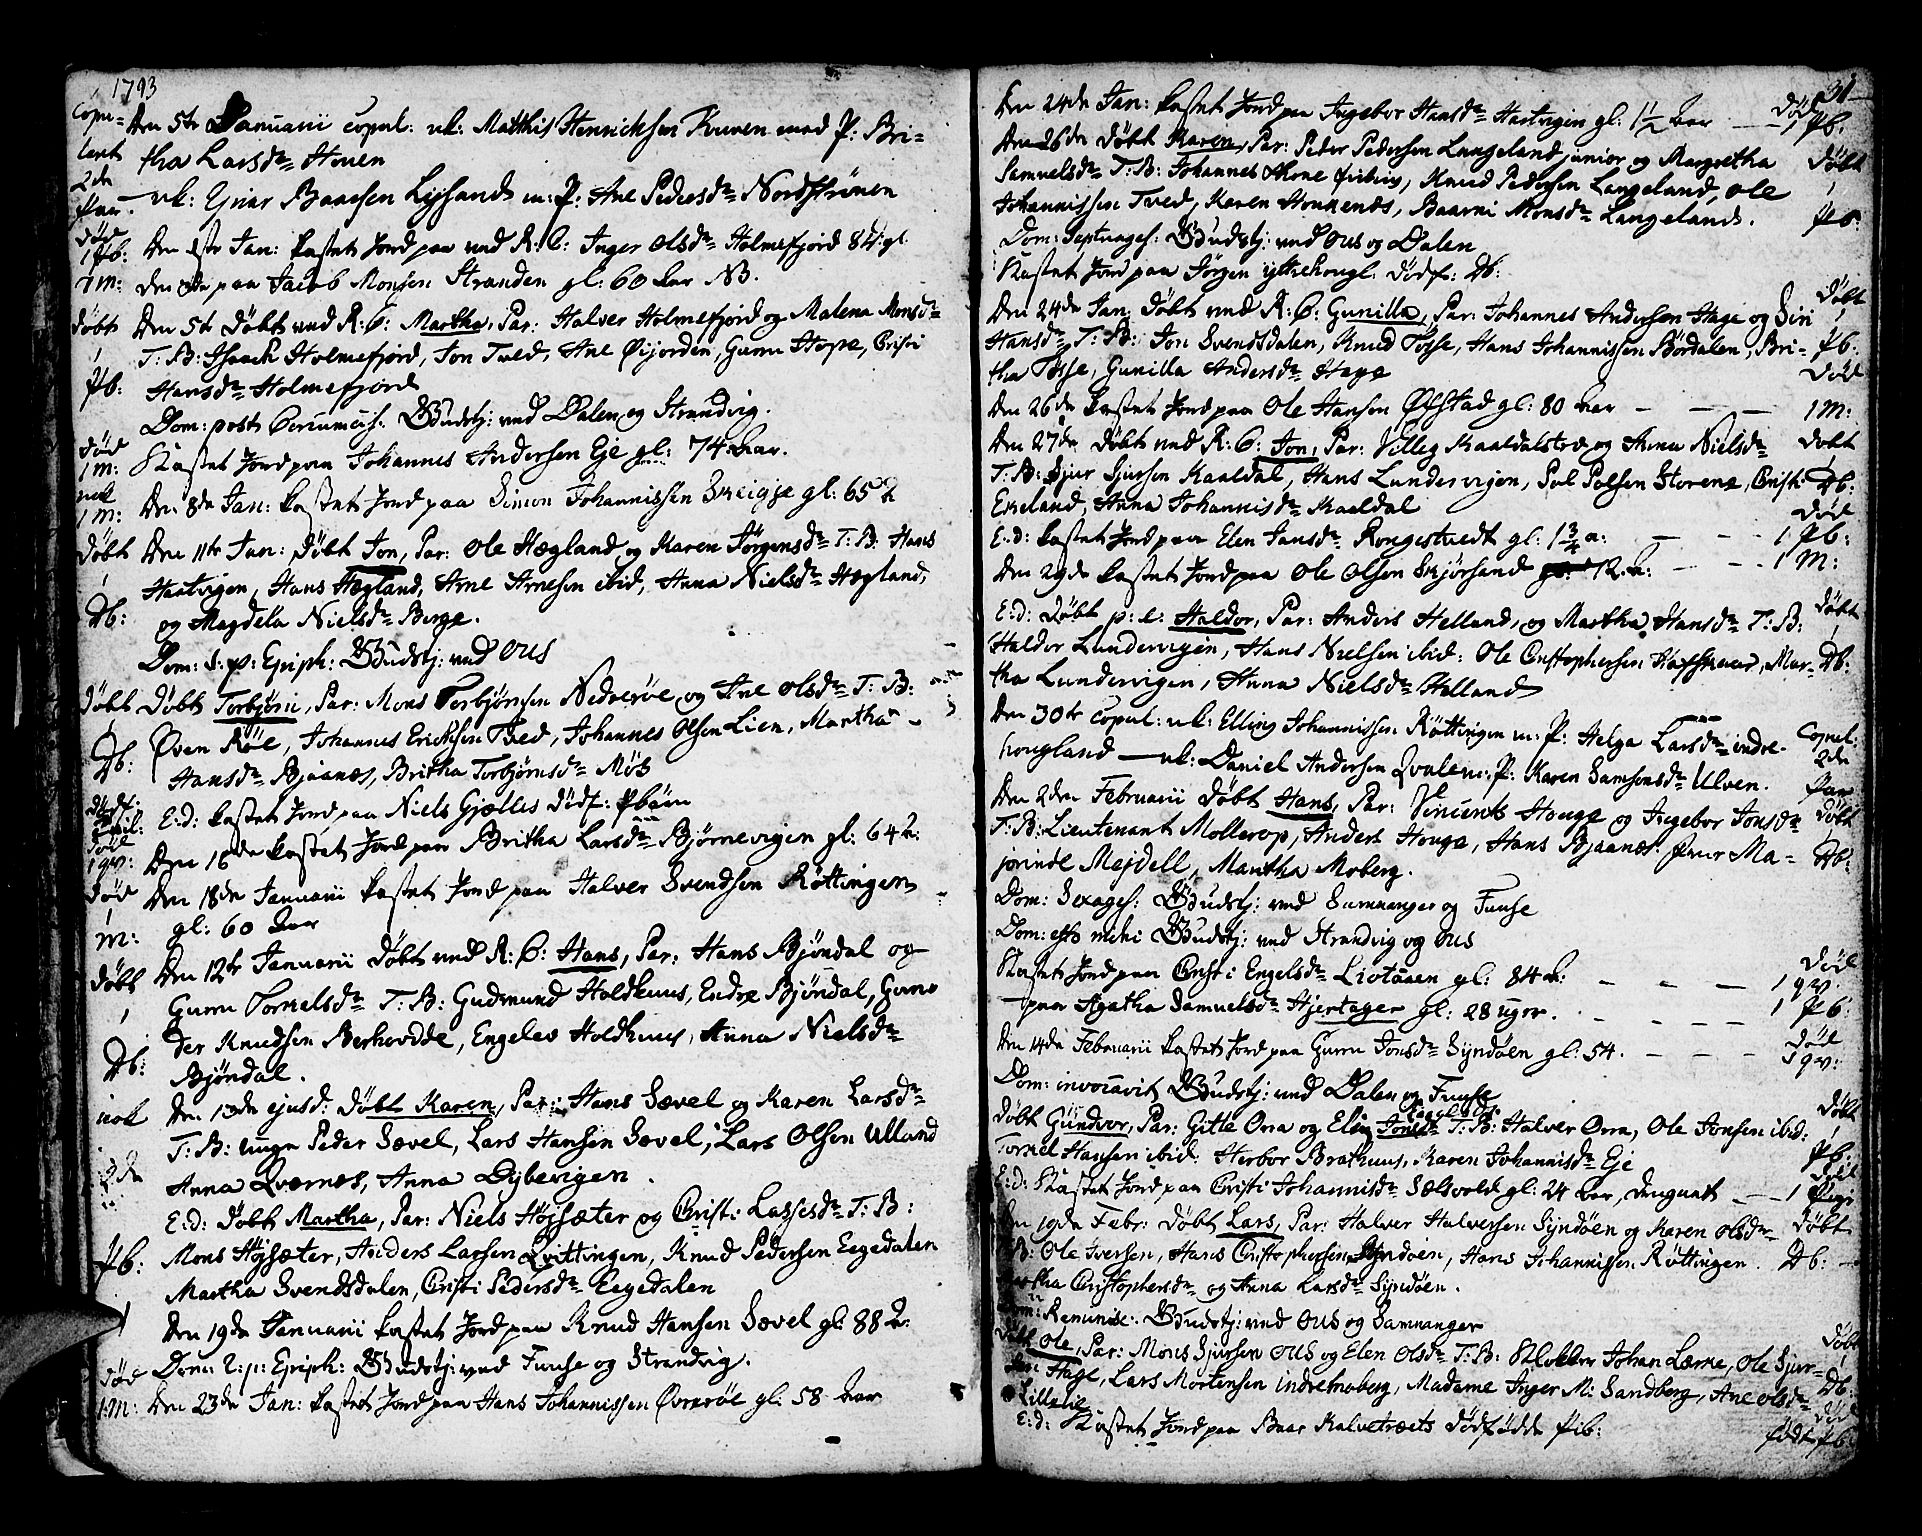 1793
Copu=
leret
2de
Par.
Den 5te Januarii copul: uk: Matthis Henrichsen Kuven med P: Bri=
tha Larsdr Houen
uk: Giær Baaesen Lysand m: P: Ane Pedersdr Nordstrønen
død
1 Pb:
Jan: kastet Jord paa ved R: C: Inger Olsdr Holmefjord 84 gl.
1 M:
paa Jacob Monsen Stranden gl: 60 aar NB.
døbt
1
Pb:
Den 5te Døbt ved R: C: Martha, Par: Halver Holmefjord og Malena Monsdr
T: B: Isaach Holmefjord, Jon Tved, Ane Øijorden, Guru Hope, Cristi
Hansdr Holmefjord
Dom: post Circumcis: Gudstj: ved Dalen og Strandvig.
død
1 M:
Kastet Jord paa Johannes Andersen Eje gl: 74 aar.
nok
1 M:
Den 8de Jan: kastet Jord paa Simon Johannissen Skeigje gl: 65 a
Døbt
1
Db:
Den 11te Jan: Døbt Jon, Par: Ole Hægland og Karen Jørgensdr T: B: Hans
Haatvigen, Hans Hægland, Arne Arnesen ibid, Anna Nielsdr Hægland,
og Magdela Nielsdr Berge.
Dom: 1. p: Epiph: Gudstj: ved OUS
Døbt
1
Db:
Døbt Torbjørn, Par: Mons Torbjørnsen Nedverøe og Ane Olsdr T: B:
Øven Røe, Johannes Ericksen Tved, Johannes Olsen Lien, Martha
Hansdr Bjaanæs, Britha Torbjørnsdr Møb
E: d: kastet Jord paa Niels Gjælles dødf: Pbarn
død
1 qv:
Den 16de kastet Jord paa Britha Larsdr Bjørnevigen gl: 64 a:
død
1
M:
Den 18de Januarii kastet Jord paa Halver Svendsen Røttingen
gl: 60 aar
døbt
1
Db:
Den 12te Januarii Døbt ved R: C: Hans, Par: Hans Bjøndal og
Guru Torkelsdr T: B: Gudmund Holdhuus, Endre Bjøndal, Gunn
der Knudsen Berhovdde, Engelev Holdhuus, Anna Nielsdr
Bjøndal.
nok
Den 13de ejusd: døbt Karen, Par: Hans Sævel og Karen Larsdr
T: B: unge Peder Sævel, Lars Hansen Sævel, Lars Olsen Ulland
Anna Qværnes, Anna Dybevigen.
E: d: Døbt Martha, Par: Niels Højsæter og Cristi Lassesdr T: B:
Pb:
Mons Højsæter, Anders Larsen Qvittingen, Knud Pedersen Eegedalen
Martha Svendsdalen, Cristi Pedersdr Eegedalen
Den 19de Januarii kastet Jord paa Knud Hansen Sævel gl: 88 a:
Dom: 2: p: Epiph: Gudstj: ved Fuuse og Strandvig.
død
1 M:
Den 23de Jan: kastet Jord paa Hans Johannissen Øvrerøe gl: 58 aar
31
Den 24de Jan: kastet Jord paa Ingebor Hansdr Haatvigen gl: 1 1/2 aar
død
1 Pb:
Den 26de døbt Karen, Par: Peder Pedersen Langeland junior og Margretha
Samuelsdr T: B: Johannes Skone, Knud Pedersen Langeland, Ole
Johannissen Tved, Karen Houkenæs, Baarni Monsdr Langeland.
Døbt
1
Pb:
Dom: Septuages: Gudstj: ved OUS og Dalen
Kastet Jord paa Jørgen ijttrehougl: dødf: Db:
Den 24de Jan: Døbt ved R: C: Gunilla, Par: Johannes Andersen Hage og Siri
Hansdr T: B: Jon Svendsdalen, Knud Tøsse, Hans Johannissen Børdalen, Bri=
tha Tøsse, Gunilla Andersdr Hage
Døbt
1
Pb:
Død
Den 26de kastet Jord paa Ole Hansen Øfstad gl: 80 aar — — — 1 M:
Den 27de døbt ved R: C: Jon, Par: Villig Kaaldalstræ og Anna Nielsdr
T: B: Sjur Sjursen Kaaldal, Hans Lundervigen, Pol Polsen Storene, Cristi
Ekeland, Anna Johannisdr Kaaldal
Døbt
Db:
Død
E: d: kastet Jord paa Elen Jansdr Rongestvedt gl: 1 3/4 a: — — 1 Pb:
Den 29de kastet Jord paa Ole Olsen Skjørsand 12. a: — — 1 M:
E: d: Døbt p: e: Haldor, Par: Anders Helland, og Martha Hansdr T: B:
Haldor Lundervigen, Hans Nielsen ibid: Ole Cristophersen Hafskaar, Mar=
tha Lundervigen, Anna Nielsdr Helland
Døbt
1
Db:
Den 30te copul: uk: Elling Johannissen Røttingen m: P: Helga Larsdr indre=
hougland — uk: Daniel Andersen Qvalem: P: Karen Samsonsdr Ulven.
Copul:
2de
Par
Den 2den Februarii Døbt Hans, Par: Vincents Houge og Ingebor Jonsdr
T: B: Lieutenant Mollerop, Anders Houge, Hans Bjaanæs. frue Ma=
jorinde Mejdell, Martha Moberg.
Døbt
1
Db:
Dom: Sexages: Gudstj: ved Samnanger og Fuuse
Dom: esto mihi Gudstj: ved Strandvig og OUS
Kastet Jord paa Cristi Engelsdr Liotaaen gl: 84 a: — — —
død
1 qv.
— paa Agatha Samuelsdr Hjertager gl: 28 uger. — — — 1 Pb:
Den 14de Februarii kastet Jord paa Guru Jonsdr Sÿndøen gl: 54. — — —
Død
1 qv:
Dom: invocavit Gudstj: ved Dalen og Fuuse
Døbt Gundvor, Par: Gitle Orra og Elin Jonsdr T: B: Halver Orra, Ole Jonsen ibid:
Torkel Hansen ibid: Herbor Brathuus, Karen Johannisdr Eje
Døbt
1
Pb:
Død
E: d: Kastet Jord paa Cristi Johannisdr Sælsvold gl: 24 aar, — — 1 Pige
Den 19de Febr: døbt Lars, Par: Halver Halversen Syndøen og Karen Olsdr
T: B: Ole Iversen, Hans Cristophersen Syndøen, Hans Johannissen Røttingen.
Cristophersdr og Anna Larsdr Syndøen.
Døbt
Db:
Dom: Reminisc: Gudstj: ved OUS og Samnanger
Døbt Ole, Par: Mons Sjursen OUS og Elen Olsdr T: B: Klokker Johan Lærne, Ole Sjur=
sen Hage, Lars Mortensen indremoberg, Madame Inger M: Sandberg, Ane Olsdr
Lillelie
Døbt
1
Db:
E: d: Kastet Jord paa Baar Kalvetræets Dødfødde Pib:
død
født Pb: